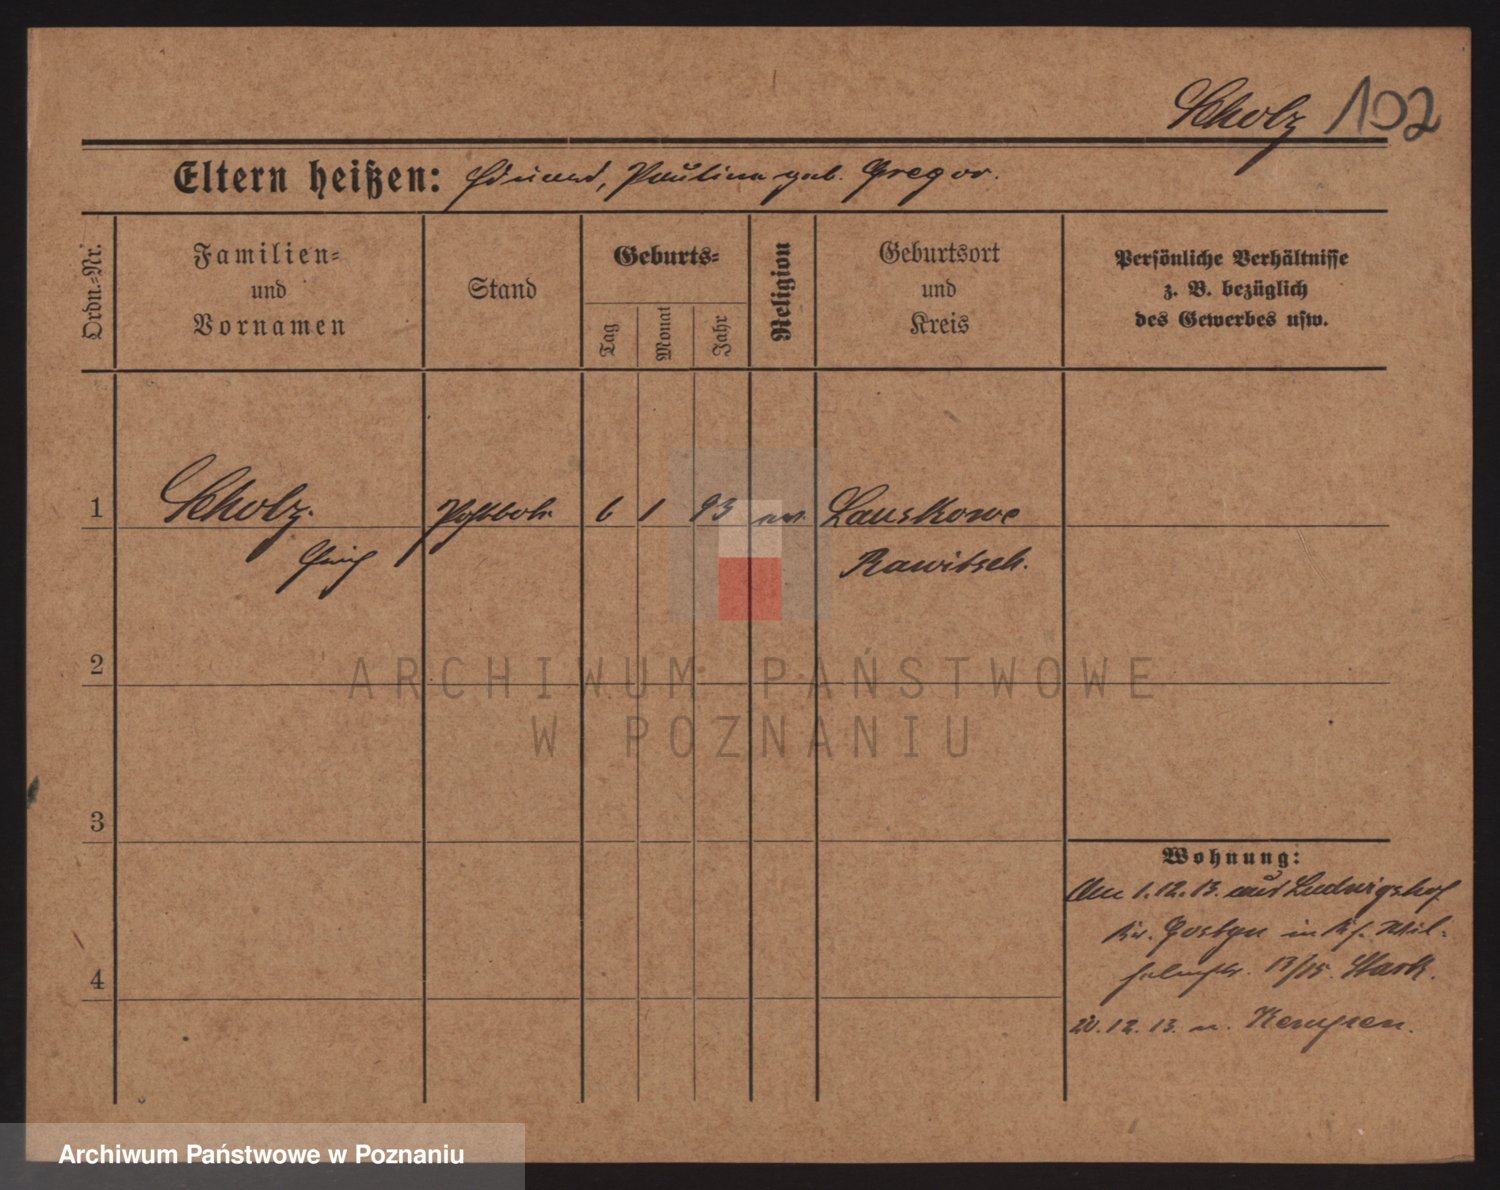 Scholz 102
Eltern heißen: Eduard, Paulina geb. Gregor.
Ordn.-Nr.
Familien-
und
Vornamen
Stand
Geburts-
Tag
Monat
Jahr
Religion
Geburtsort
und
Kreis
Persönliche Verhältnisse
z. B. bezüglich
des Gewerbes usw.
1 Scholz. Postbote 6 1 93 ev. Lauskowe
Rawitsch.
2
3
4
Wohnung:
1.12.13. aus Ludwigshof
Kr. Gostyn in
13/15. Stark.
20.12.13. n. Kempen.
ARCHIWUM PAŃSTWOWE
W POZNANIU
Archiwum Państwowe w Poznaniu